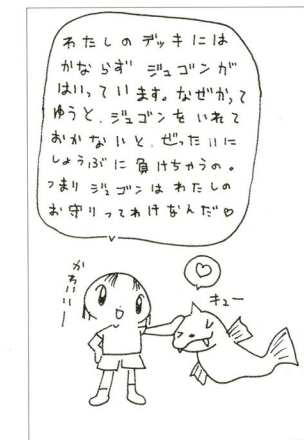 わたしのデッキには
かならず ジュゴンが
はいっています。なぜかって
ゆうと、ジュゴンをいれて
おかないと、ぜったいに
しょうぶに負けちゃうの。
つまりジュゴンはわたしの
お守りってわけなんだ♡
かわいいー
キュー